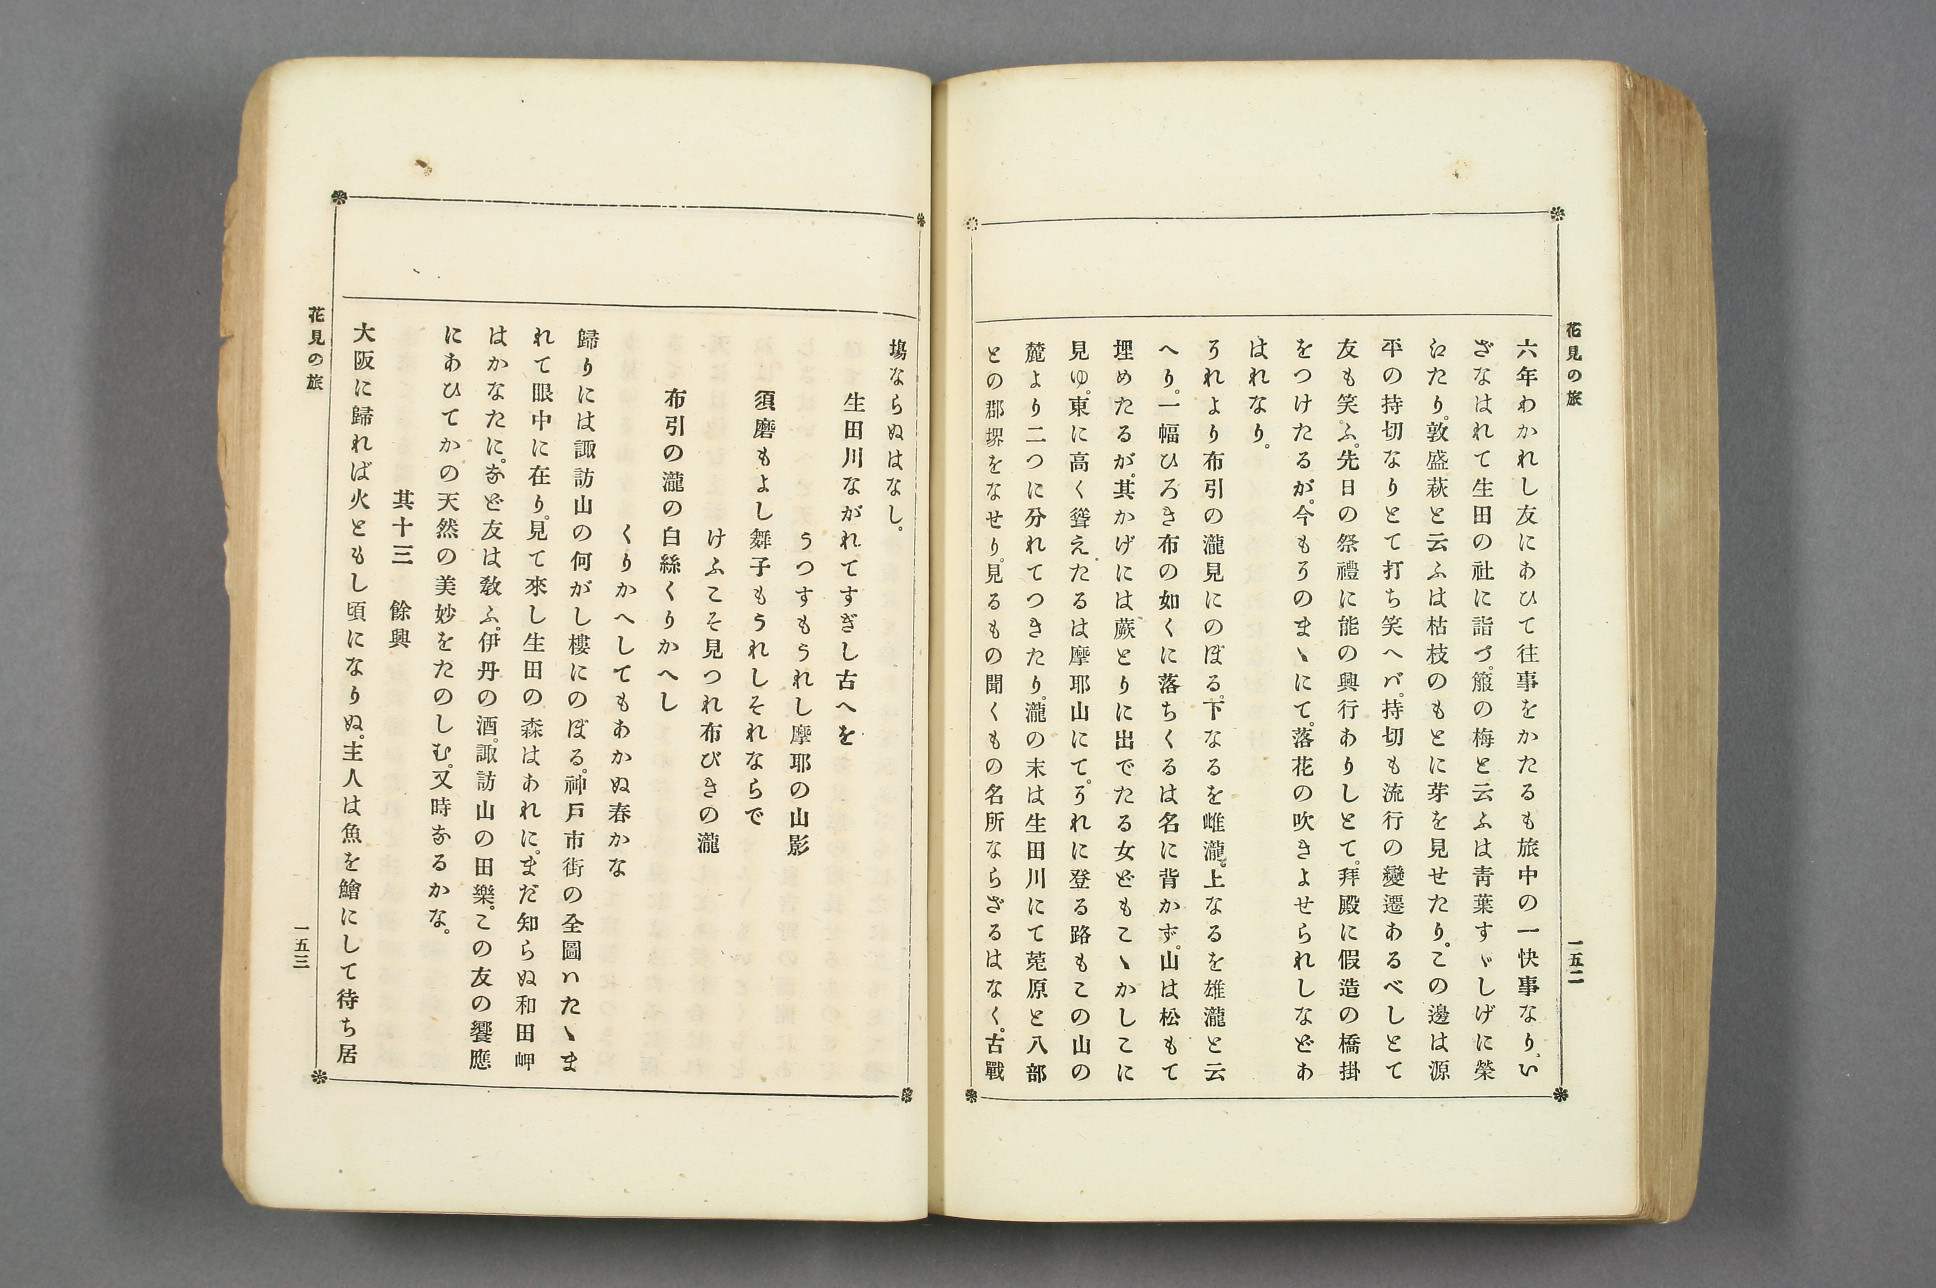 花見の旅
一五二
六年わかれし友にあひて往事をかたるも旅中の一快事なり、い
ざなはれて生田の社に詣づ。箙の梅と云ふは靑葉すゞしげに榮
えたり。敦盛萩と云ふは枯枝のもとに芽を見せたり。この邊は源
平の持切なりとて打ち笑へバ。持切も流行の變遷あるべしとて
友も笑ふ。先日の祭禮に能の興行ありしとて。拜殿に假造の橋掛
をつけたるが。今もそのまゝにて。落花の吹きよせられしなどあ
はれなり。
それより布引の瀧見にのぼる。下なるを雌瀧。上なるを雄瀧と云
へり。一幅ひろき布の如くに落ちくるは名に背かず。山は松もて
埋めたるが。其かげには蕨とりに出でたる女どもこゝかしこに
見ゆ。東に高く聳えたるは摩耶山にて。それに登る路もこの山の
麓より二つに分れてつきたり。瀧の末は生田川にて菟原と八部
との郡堺をなせり。見るもの聞くもの名所ならざるはなく。古戰
塲ならぬはなし。
生田川ながれてすぎし古へを
うつすもうれし摩耶の山影
須磨もよし舞子もうれしそれならで
けふこそ見つれ布びきの瀧
布引の瀧の白絲くりかへし
くりかへしてもあかぬ春かな
歸りには諏訪山の何がし樓にのぼる。神戸市街の全圖ハたゝま
れて眼中に在り。見て來し生田の森はあれに。まだ知らぬ和田岬
はかなたに。など友は敎ふ。伊丹の酒。諏訪山の田樂。この友の饗應
にあひてかの天然の美妙をたのしむ。又時なるかな。
其十三　餘興
大阪に歸れば火ともし頃になりぬ。主人は魚を鱠にして待ち居
花見の旅
一五三